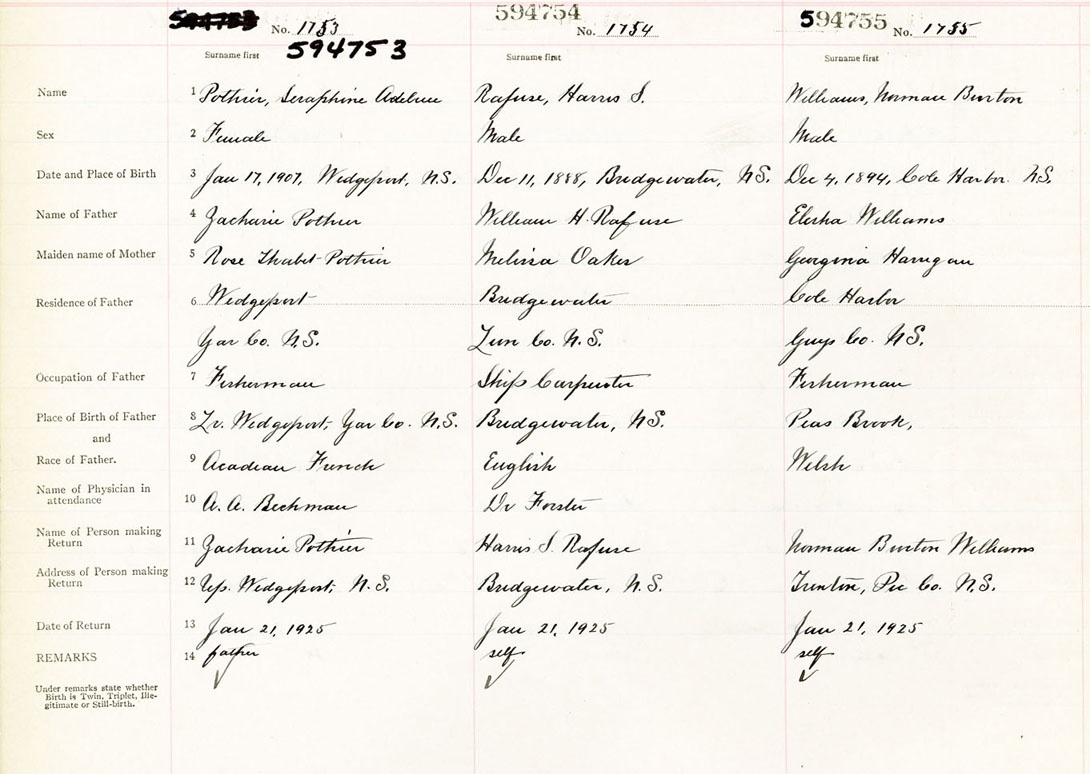 594753 No. 1753 594754 No. 1754 594755 No. 1755
Surname first 594753 Surname first Surname first
Name 1 Pothier, Seraphine Rafuse, Harris S. Williams, Norman Burton
Sex 2 Female Male Male
Date and Place of Birth 3 Jan 17, 1907, Wedgeport, N.S. Dec 11, 1888, Bridgewater, N.S. Dec 4, 1894, Cole Harbor. N.S.
Name of Father 4 Zacharie Pothier William H. Rafuse Elisha Williams
Maiden name of Mother 5 Rose Pothier Melissa Oakes Georgina Harrigan
Residence of Father 6 Wedgeport Bridgewater Cole Harbor
Yar Co. N.S. Lun Co. N.S. Guys Co. N.S.
Occupation of Father 7 Fisherman Ship Carpenter Fisherman
Place of Birth of Father 8 Lr. Wedgeport, Yar Co. N.S. Bridgewater, N.S. Peas Brook,
and
Race of Father. 9 Acadian French English Welsh
Name of Physician in
attendance 10 A. A. Beckman Dr Forster
Name of Person making
Return 11 Zacharie Pothier Harris S. Rafuse Norman Burton Williams
Address of Person making
Return 12 Up. Wedgeport, N.S. Bridgewater, N.S. Trenton, Pic Co. N.S.
Date of Return 13 Jan 21, 1925 Jan 21, 1925 Jan 21, 1925
REMARKS 14 father self self
Under remarks state whether
Birth is Twin, Triplet, Ille-
gitimate or Still-birth.